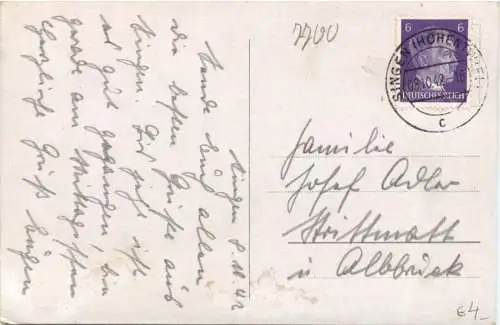 7700
6 6
DEUTSCHES REICH
SINGEN (HOHENTWIEL)
10.42
c
Familie
Josef Adler
Strittmatt
ü Albbruck
Singen 8.10.42
Sende Euch allen
die besten Grüße aus
Singen. Mir geht es
gut
gerade am Mittagessen
Herzliche Grüße
Eugen
€4.-